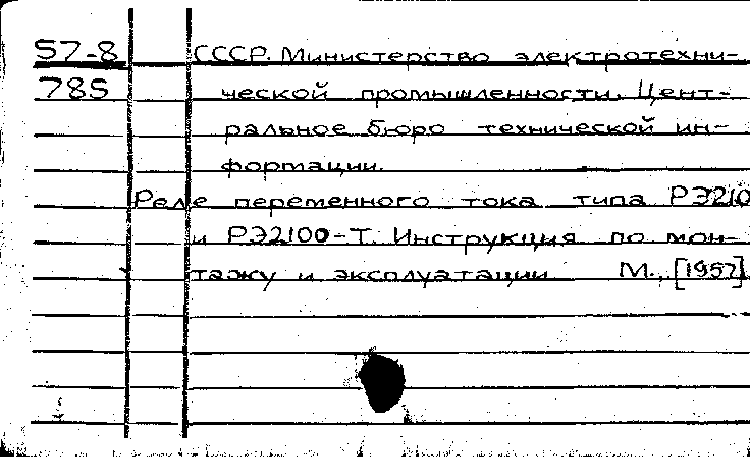 57-8 СССР. Министерство электротехни-
785 ческой промышленности. Цент-
ральное бюро технической ин-
формации.
Реле переменного тока типа РЭ2100
и РЭ2100-Т. Инструкция по мон-
тажу и эксплуатации М., [1957].